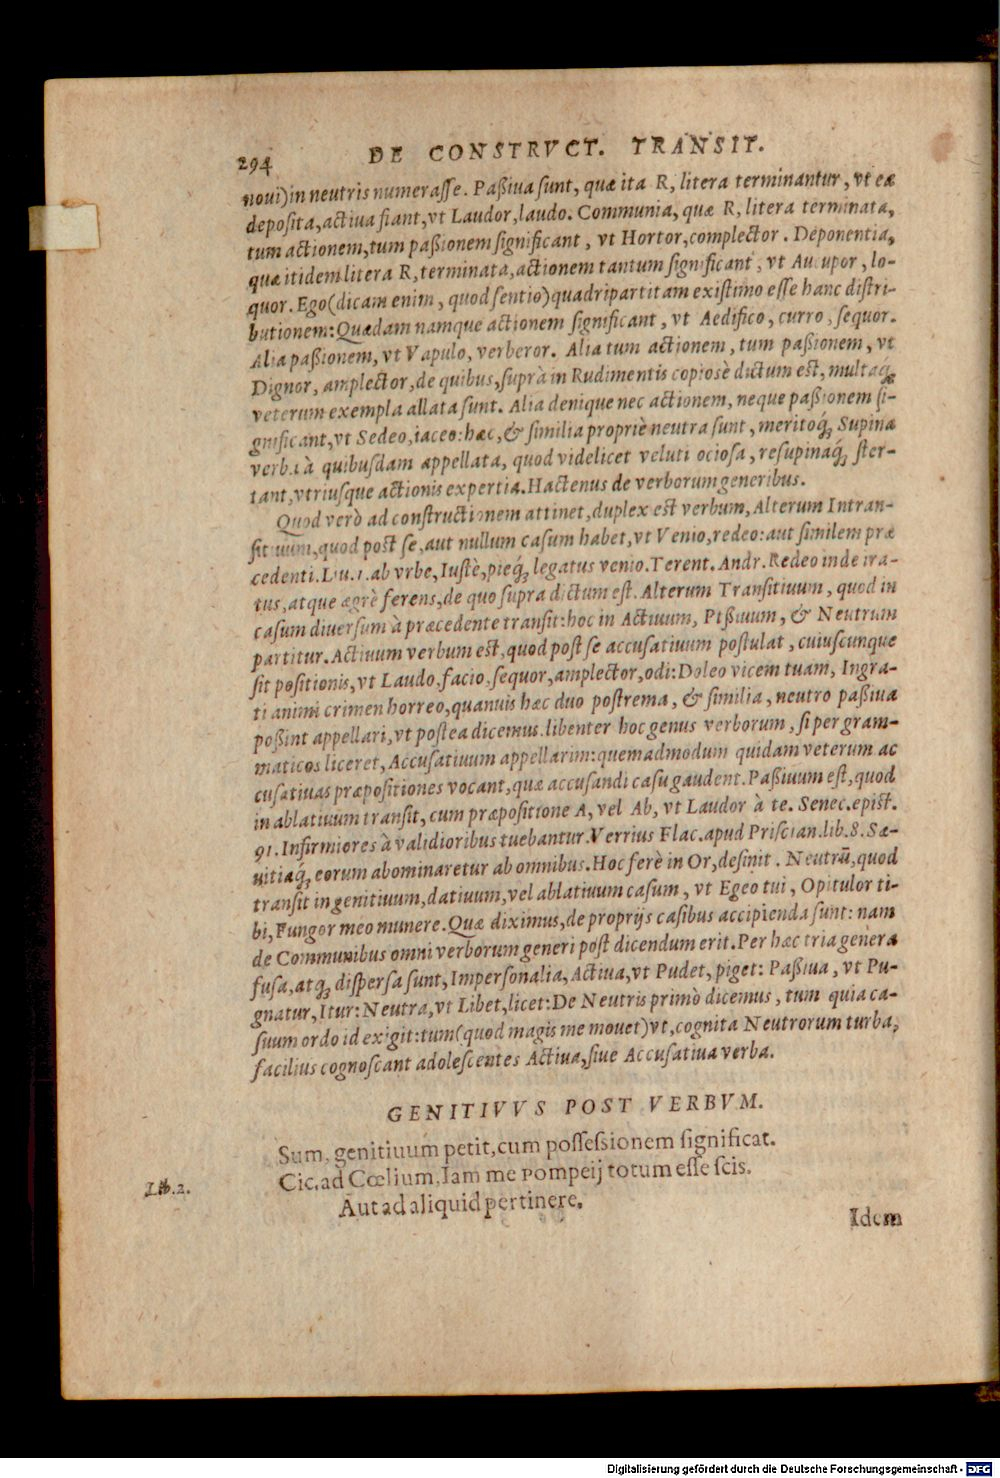 294 DE CONSTRVCT. TRANSIT.
noui) in neutris numeraſſe. Paßiua ſunt, quæ ita R, litera terminantur, vt eæ
depoſita, actiua fiant, vt Laudor, laudo. Communia, quæ R, litera terminata,
tum actionem, tum paßionem ſignificant, vt Hortor, complector. Deponentia,
quæ itidem litera R, terminata, actionem tantum ſignificant, vt Aucupor, lo-
quor. Ego (dicam enim, quod ſentio) quadripartitam exiſtimo eſſe hanc diſtri-
butionem: Quædam namque actionem ſignificant, vt Aedifico, curro, ſequor.
Alia paßionem, vt Vapulo, verberor. Alia tum actionem, tum paßionem, vt
Dignor, amplector, de quibus, ſuprà in Rudimentis copiosè dictum eſt, multaq́;
veterum exempla allata ſunt. Alia denique nec actionem, neque paßionem ſi-
gnificant, vt Sedeo, iaceo: hæc, & ſimilia propriè neutra ſunt, meritoq́; Supina
verb.ı à quibuſdam appellata, quod videlicet veluti ocioſa, reſupinaq́; ſter-
tant, vtriuſque actionis expertia. Hactenus de verborum generibus.
Quod verò ad conſtructionem attinet, duplex eſt verbum, Alterum Intran-
ſitiuum, quod poſt ſe, aut nullum caſum habet, vt Venio, redeo: aut ſimilem præ
cedenti. Liu. 1. ab vrbe, Iuſtè, pieq́; legatus venio. Terent. Andr. Redeo inde ira-
tus, atque ægrè ferens, de quo ſupra dictum eſt. Alterum Tranſitiuum, quod in
caſum diuerſum à præcedente tranſit: hoc in Actiuum, Pſßiuum, & Neutrum
partitur. Actiuum verbum eſt, quod poſt ſe accuſatiuum poſtulat, cuiuſcunque
ſit poſitionis, vt Laudo, facio, ſequor, amplector, odi: Doleo vicem tuam, Ingra-
ti animi crimen horreo, quanuis hæc duo poſtrema, & ſimilia, neutro paßiua
poßint appellari, vt poſtea dicemus. libenter hoc genus verborum, ſi per gram-
maticos liceret, Accuſatiuum appellarim: quemadmodum quidam veterum ac
cuſatiuas præpoſitiones vocant, quæ accuſandi caſu gaudent. Paßiuum eſt, quod
in ablatiuum tranſit, cum præpoſitione A, vel Ab, vt Laudor à te. Senec. epiſt.
91. Infirmiores à validioribus tuebantur. Verrius Flac. apud Priſcian. lib. 8. Sæ-
uitiaq́; eorum abominaretur ab omnibus. Hoc ferè in Or, deſinit. Neutrũ, quod
tranſit in genitiuum, datiuum, vel ablatiuum caſum, vt Egeo tui, Opitulor ti-
bi, Fungor meo munere. Quæ diximus, de proprijs caſibus accipienda ſunt: nam
de Communibus omni verborum generi poſt dicendum erit. Per hæc tria genera
fuſa, atq́; diſperſa ſunt, Imperſonalia, Actiua, vt Pudet, piget: Paßiua, vt Pu-
gnatur, Itur: Neutra, vt Libet, licet: De Neutris primò dicemus, tum quia ca-
ſuum ordo id exigit: tum (quod magis me mouet) vt, cognita Neutrorum turba,
facilius cognoſcant adoleſcentes Actiua, ſiue Accuſatiua verba.
GENITIVVS POST VERBVM.
Sum, genitiuum petit, cum poſſeſsionem ſignificat.
Lib. 2. Cic. ad Cœlium, Iam me Pompeij totum eſſe ſcis.
Aut ad aliquid pertinere.
Idem
Digitalisierung gefördert durch die Deutsche Forschungsgemeinschaft - DFG